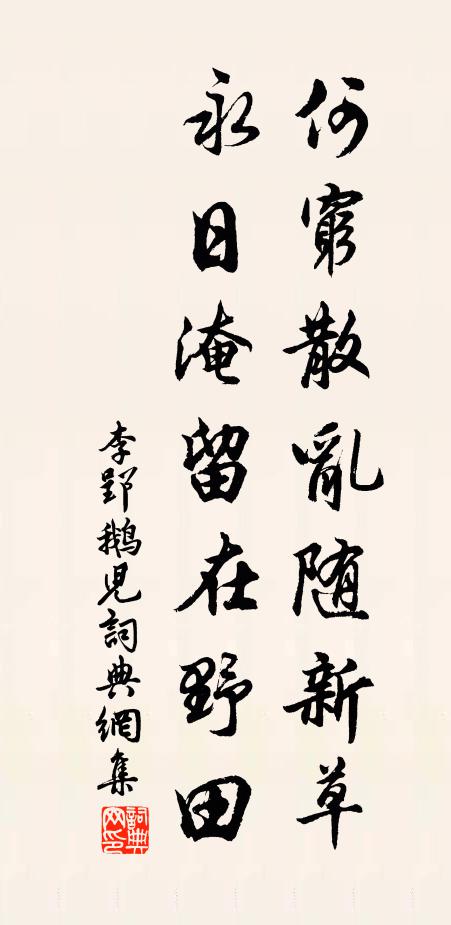 何窮散亂随新草
永日淹留在野田
李郢鵝児詞典網集
詞典
网印